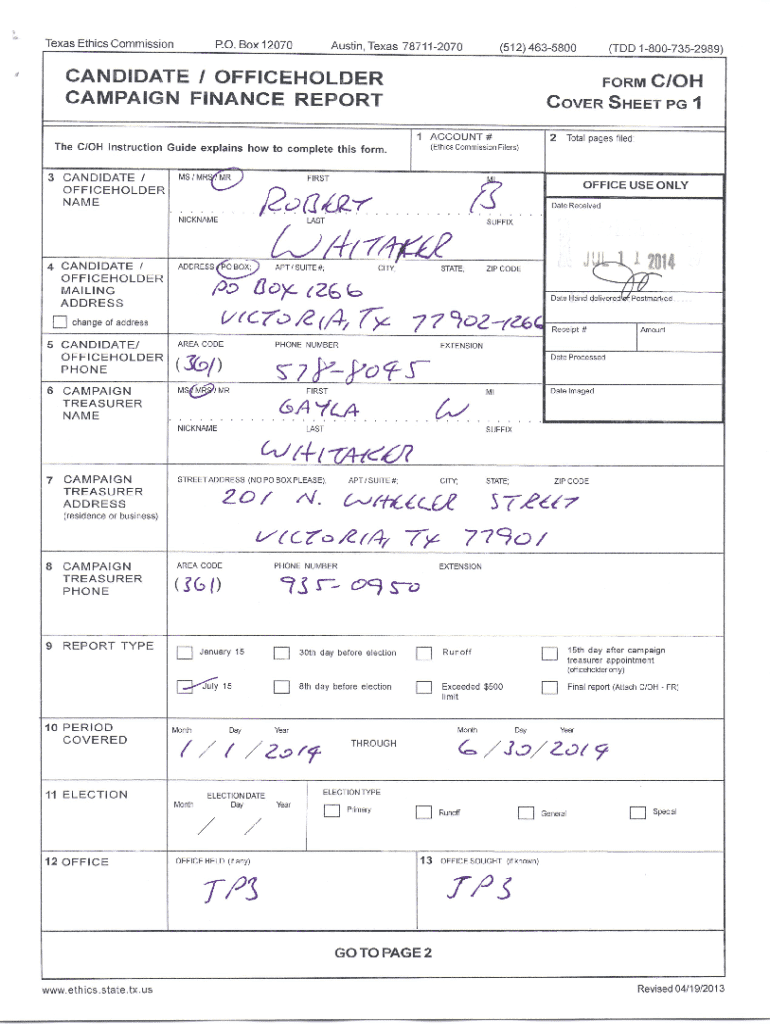 Texas Ethics Commission P.O. Box 12070 Austin, Texas 78711-2070 (512) 463-5800 (TDD 1-800-735-2989)
CANDIDATE / OFFICEHOLDER
CAMPAIGN FINANCE REPORT
FORM C/OH
COVER SHEET PG 1
The C/OH Instruction Guide explains how to complete this form.
1 ACCOUNT #
(Ethics Commission Filers)
2 Total pages filed:
3 CANDIDATE /
OFFICEHOLDER
NAME
MS / MRS / MR FIRST MI
ROBERT B
NICKNAME LAST SUFFIX
WHITAKER
OFFICE USE ONLY
Date Received
JUL 11 2014
Date Hand-delivered or Postmarked
Receipt # Amount
Date Processed
Date Imaged
4 CANDIDATE /
OFFICEHOLDER
MAILING
ADDRESS
change of address
ADDRESS / PO BOX; APT / SUITE #; CITY; STATE; ZIP CODE
PO BOX 1266
VICTORIA, TX 77902-1266
5 CANDIDATE/
OFFICEHOLDER
PHONE
AREA CODE PHONE NUMBER EXTENSION
(361) 578-8095
6 CAMPAIGN
TREASURER
NAME
MS / MRS / MR FIRST MI
GAYLA W
NICKNAME LAST SUFFIX
WHITAKER
7 CAMPAIGN
TREASURER
ADDRESS
(residence or business)
STREET ADDRESS (NO PO BOX PLEASE); APT / SUITE #; CITY; STATE; ZIP CODE
201 N. WHEELER STREET
VICTORIA, TX 77901
8 CAMPAIGN
TREASURER
PHONE
AREA CODE PHONE NUMBER EXTENSION
(361) 935-0950
9 REPORT TYPE
January 15 30th day before election Runoff 15th day after campaign
treasurer appointment
(officeholder only)
July 15 8th day before election Exceeded $500
limit
Final report (Attach C/OH - FR)
10 PERIOD
COVERED
Month Day Year Month Day Year
1 / 1 / 2014 THROUGH 6 / 30 / 2014
11 ELECTION
ELECTION DATE
Month Day Year
/ /
ELECTION TYPE
Primary Runoff General Special
12 OFFICE
OFFICE HELD (if any)
JP3
13 OFFICE SOUGHT (if known)
JP3
GO TO PAGE 2
www.ethics.state.tx.us Revised 04/19/2013